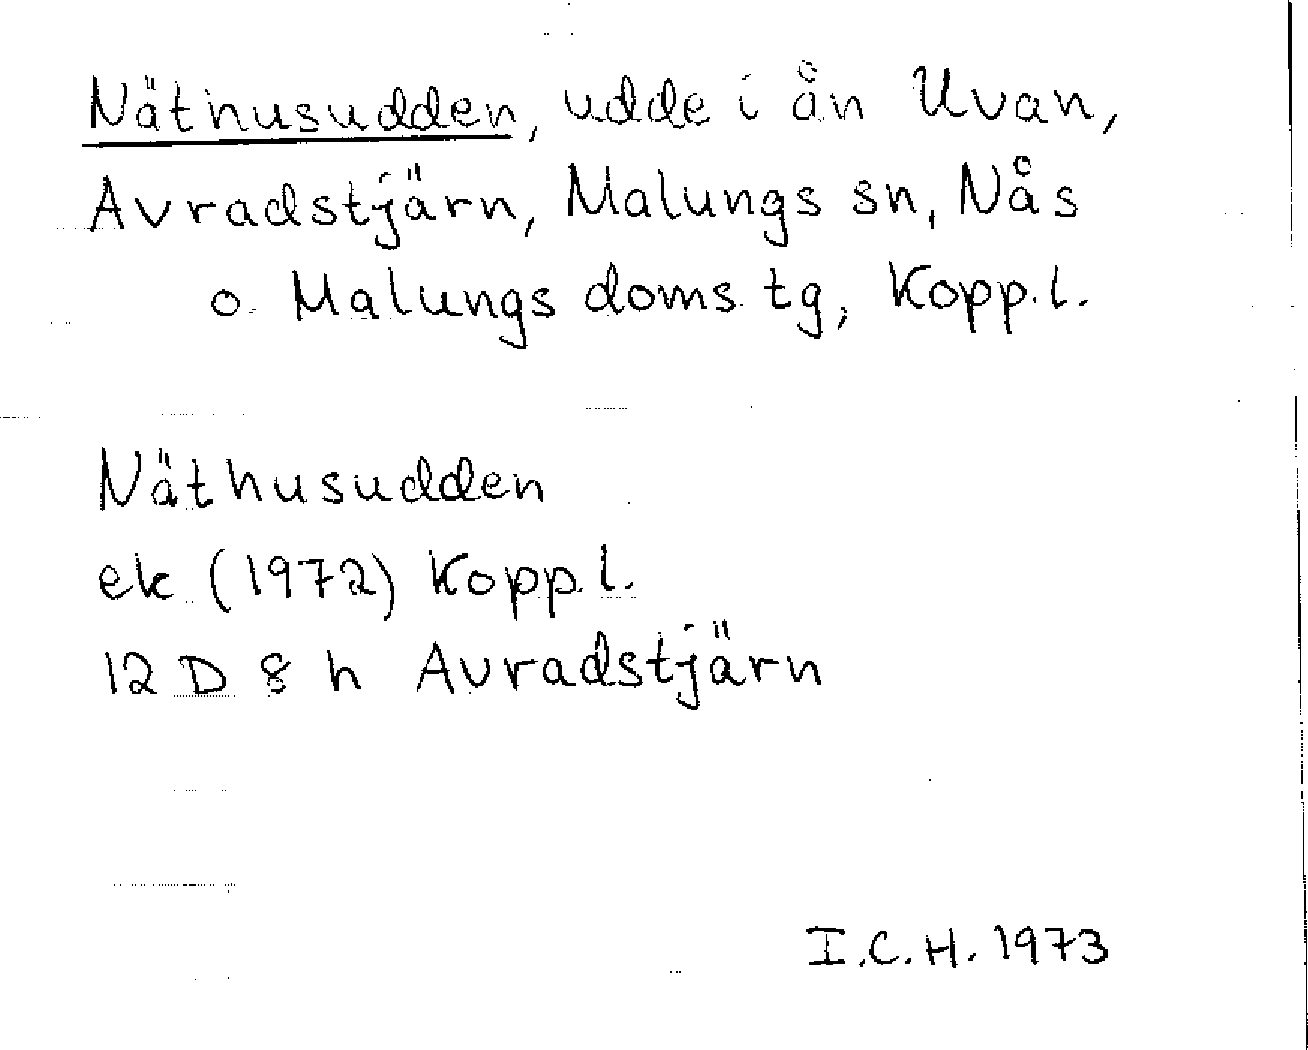 Näthusudden, udde i ån Uvan,
Avradstjärn, Malungs sn, Nås
o. Malungs doms. tg, Kopp. l.
Näthusudden
ek (1972) Kopp. l.
12 D 8 h Avradstjärn
I.C.H. 1973